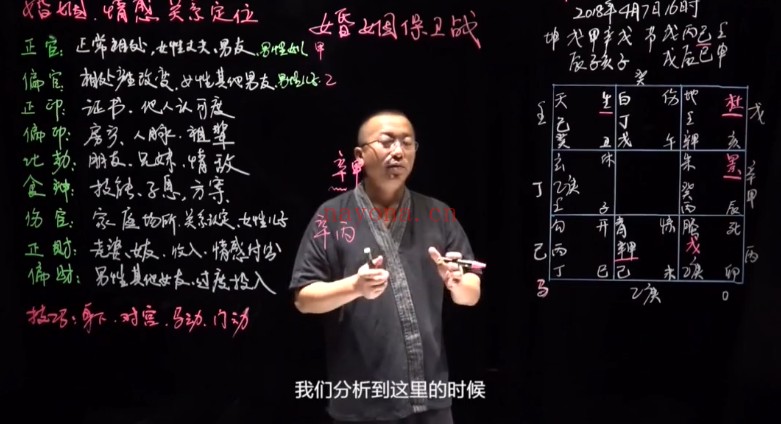 婚姻、情感关系定位
婚姻保卫战
正官：正常相处，女性丈夫、男友，男性女儿
偏官：相处产生改变，女性其他男友，男性儿子
正印：证书、他人认可度
偏印：房子、人脉、祖辈
比劫：朋友、兄妹、情敌
食神：技能、子息、方案
伤官：家庭场所、关系认定、女性儿子
正财：老婆、女友、收入、情感付出
偏财：男性其他女友、过度投入
技巧：身下、对宫、马动、门动
辛甲
辛丙
2018年4月7日16时
坤 戊甲辛戊 节 戊丙己壬
辰子亥子 戊辰巳申
癸
壬 天 生 白 伤 地 杜 戊
己 丁 壬
癸 丑 戊 午 辛甲 亥
玄 休 朱 景 辛甲
丁 乙庚 癸
壬 子 丙 辰
勾 开 青 惊 腾 死 丙
己 丙 辛甲 戊
丁 巳 己 未 乙庚 卯
马 乙庚 0
navona.cn
我们分析到这里的时候